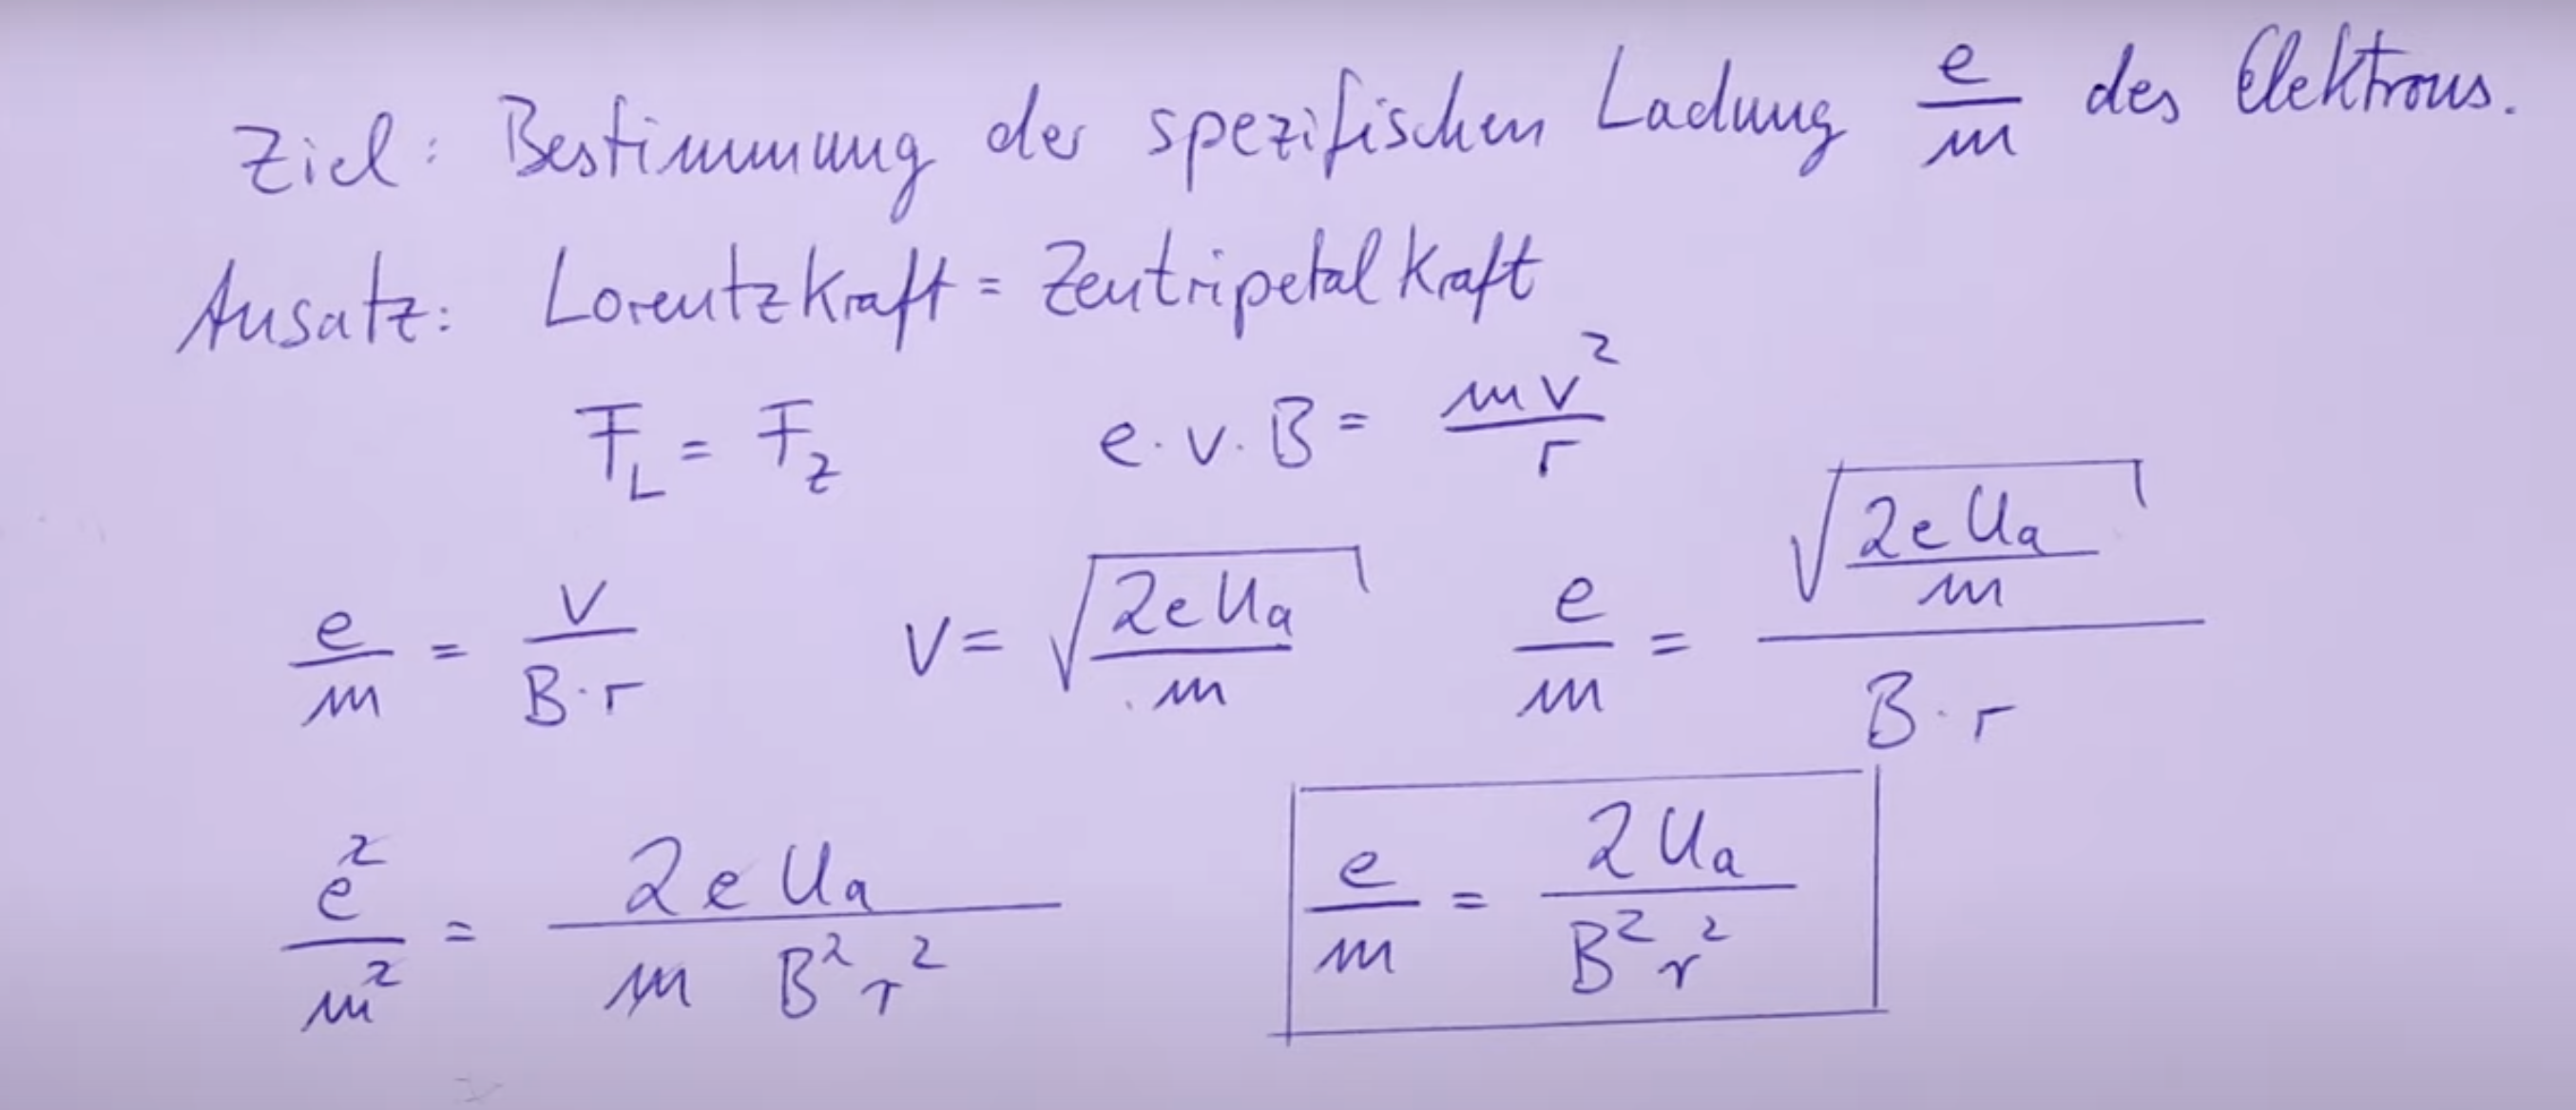 Ziel: Bestimmung der spezifischen Ladung e/m des Elektrons.
Ansatz: Lorentzkraft = Zentripetalkraft
F_L = F_Z e·v·B = mv²/r
e/m = v/(B·r) v = √(2eUₐ/m) e/m = √(2eUₐ/m)/(B·r)
e²/m² = 2eUₐ/(m B²r²) e/m = 2Uₐ/(B²r²)